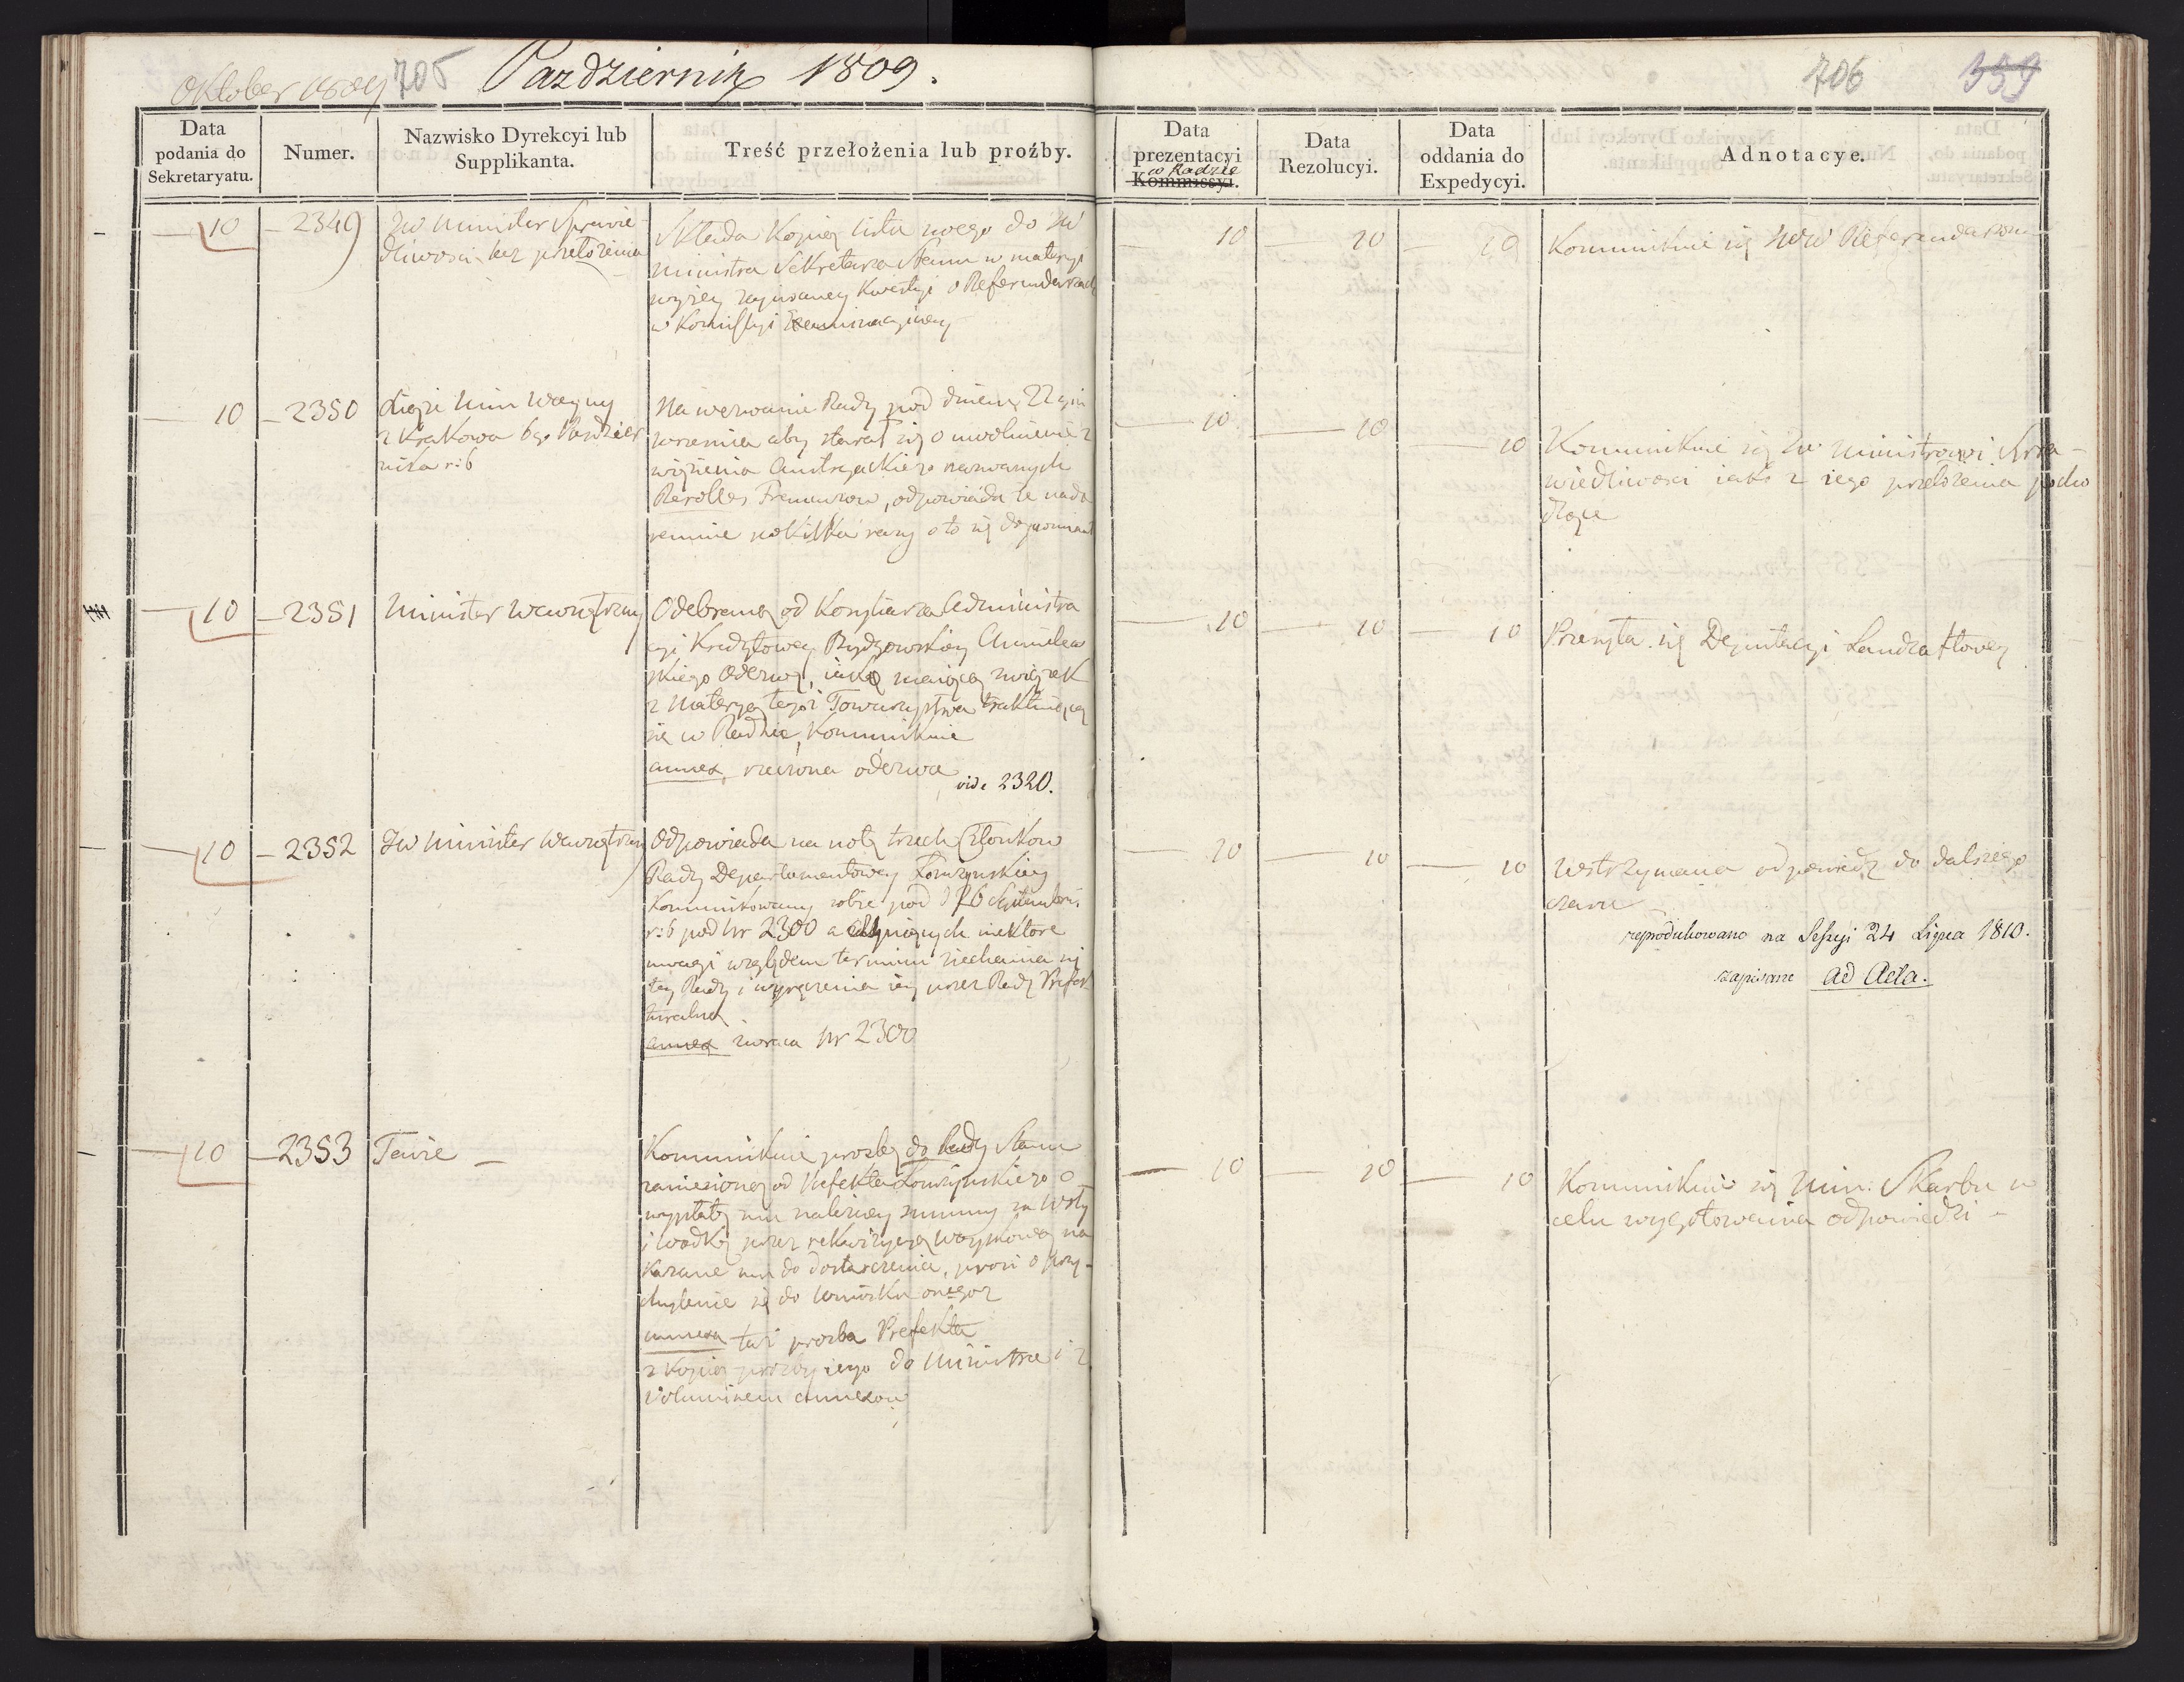 Oktober 1809
705
Pazdziernik 1809.
706
359
Data podania do Sekretaryatu.
Numer.
Nazwisko Dyrekcyi lub Supplikanta.
Treść przełożenia lub proźby.
Data prezentacyi w Radzie Kommissyi.
Data Rezolucyi.
Data oddania do Expedycyi.
Adnotacye.
10
2349
JW Minister Sprawie
dliwosci bez przełożenia
Składa Kopią listu swego do JW
Ministra Sekretarza Stanu w materyi
wyżey zapisaney Kwestyi o Referendarzach
w Komissyi Examinacyiney
10
10
10
Kommunikuie się
Referendarzom
10
2350
Minn Woyny
z Krakowa 6go Paździer
nika r: b
Na wezwanie Rady pod dniem 22gim
września aby starał się o uwolnienie z
więzienia Austryackiego nazwanych
odpowiada że nada
remnie po kilka razy o to się dopominał
10
10
10
Kommunikuie się JW Ministrowi Spra-
wiedliwosci iako z iego przełożenia pocho
dzące
10
2351
Minister Wewnętrzny
Odebraną od Konsyliarza Administra
cyi Kredytowey Bydgowskiey
skiego Odezwę, iako maiącą związek
z Materyą tegoż Towarzystwa traktuiącą
się w Radzie, Kommunikuie
annex, rzeczona odezwa
vide 2320.
10
10
10
Przesyła się Deputacyi Landszaftowey
10
2352
JW Minister Wewnętrzny
Odpowiada na notę trzech Członków
Rady Departamentowey Łomżynskiey
Kommunikowaną sobie pod d 26 Septembris
r: b pod Nr 2300 a czyniących niektore
uwagi względem terminu ziechania się
tey Rady i wyręczenia iey przez Radę Prefek
turalną
annex zwraca Nr 2300
10
10
10
Wstrzymana odpowiedź do dalszego
czasu
reprodukowano na Sessyi 24 Lipca 1810.
zapisane Ad Acta.
10
2353
Tenże –
Kommunikuie prośbę do Rady Stanu
zaniesioną od Prefekta Łomżynskiego o
wypłatę mu należney summy za Woły
i wodkę przez rekwizycyą woyskową na
kazane mu do dostarczenia, prosi o przy-
chylenie się do wniosku onegoż
annexa też prozba Prefekta
z kopią prozby iego do Ministra i z
Voluminem annexow
10
10
10
Kommunikuie się Min. Skarbu w
celu wygotowania odpowiedzi –